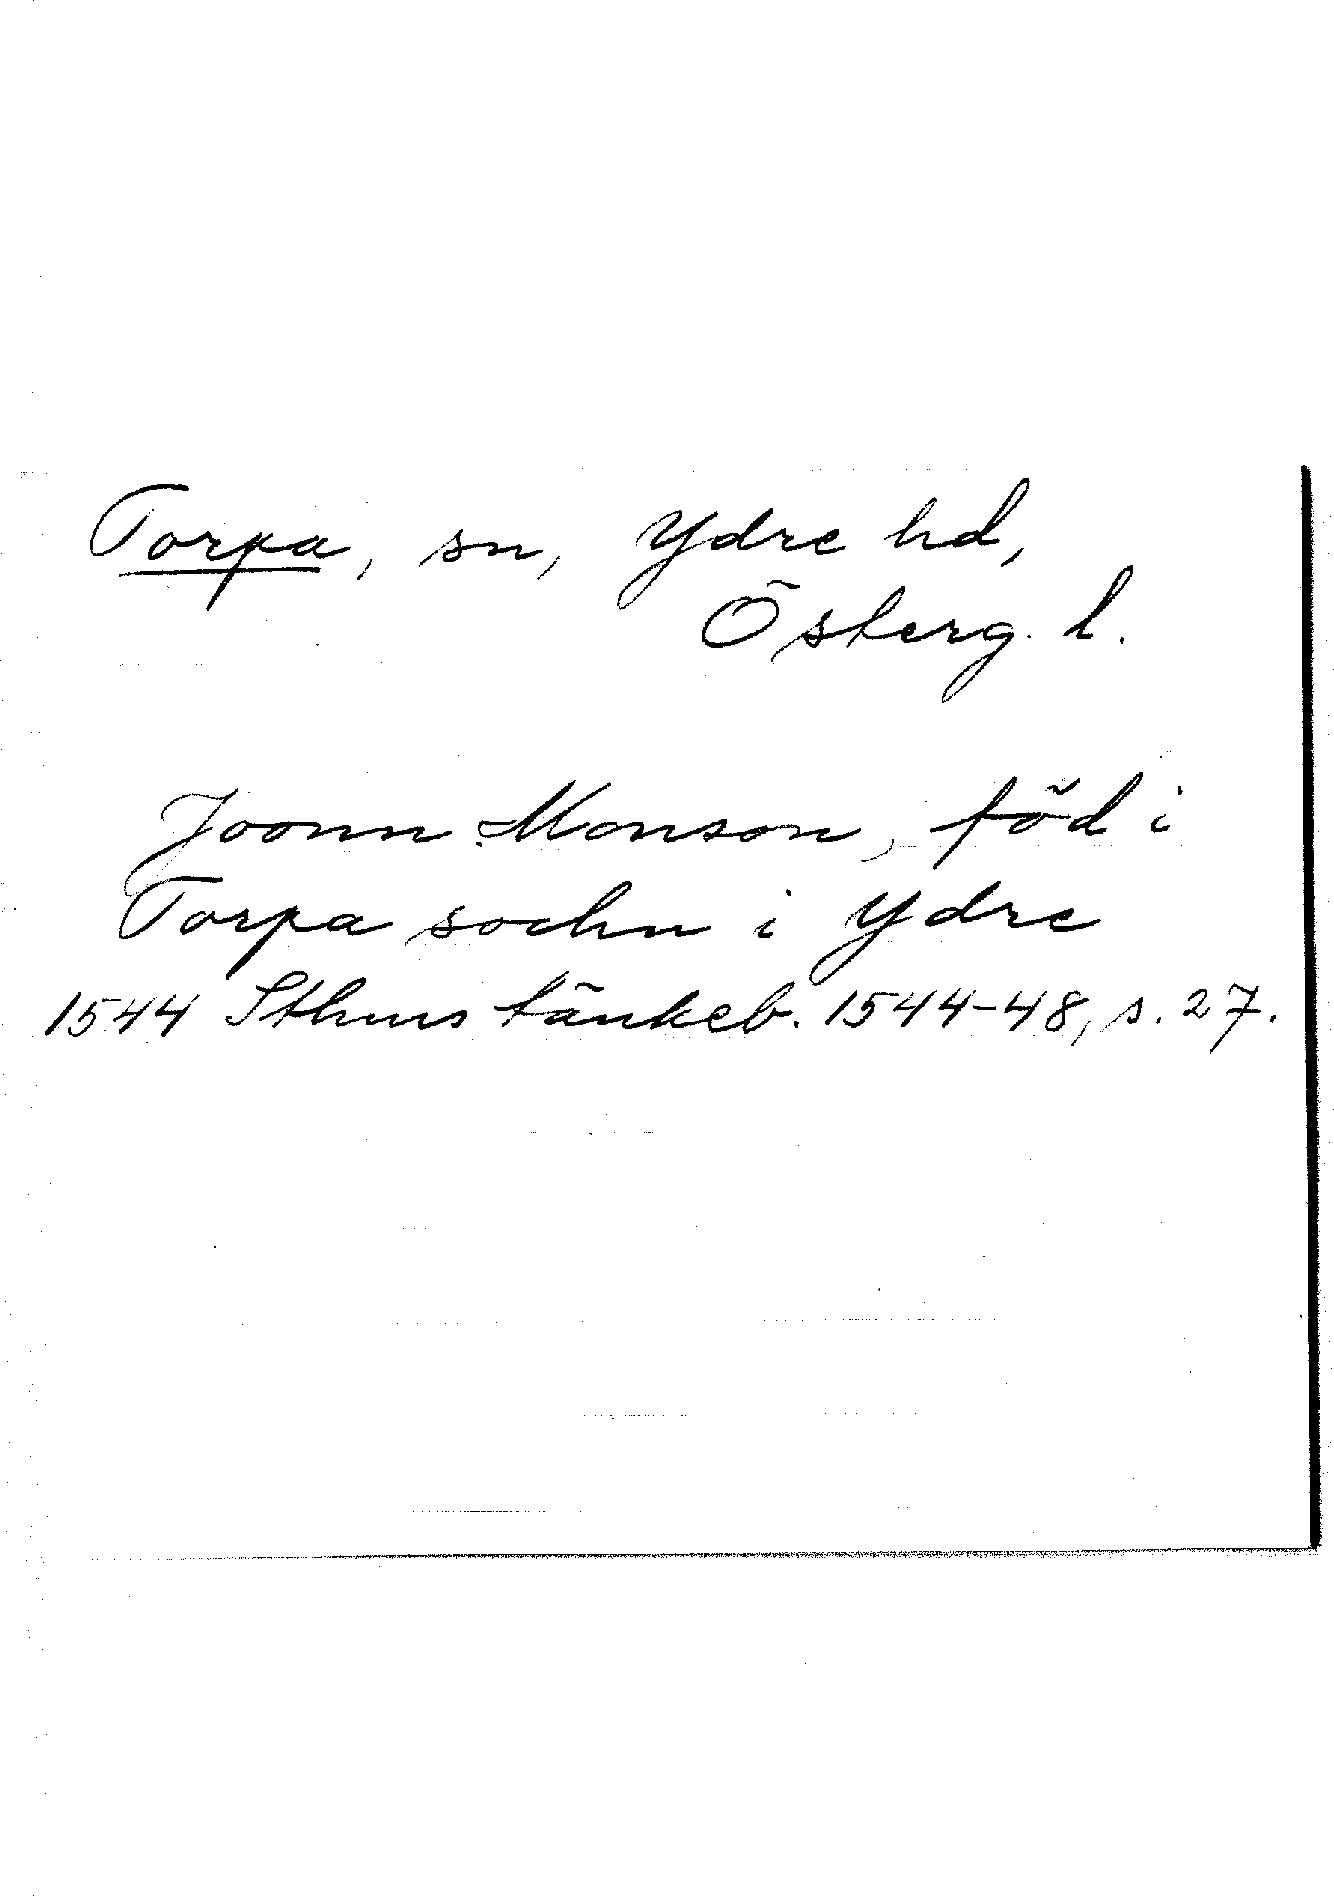 Torpa, sn, Ydre hd,
Österg. l.
Joonn Monson, född i
Torpa sochn i Ydre
1544 Sthms tänkeb. 1544-48, s. 27.